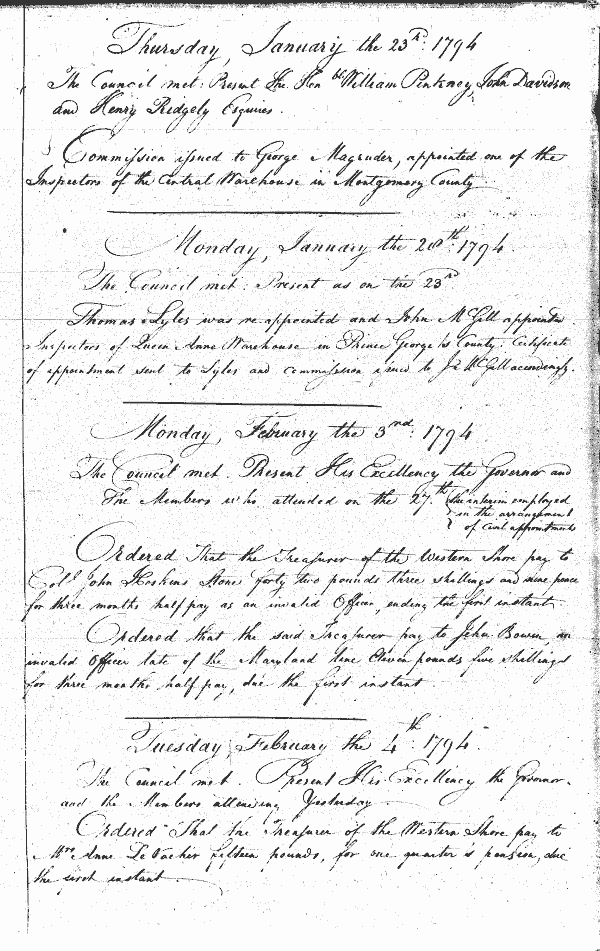 Thursday, January the 23d. 1794
The Council met: Present the Honble William Pinkney, John Davidson
and Henry Ridgely Esquires.
Commission issued to George Magruder, appointed one of the
Inspectors of the Central Warehouse in Montgomery County.
Monday, January the 20th. 1794.
The Council met: Present as on the 23d
Thomas Lyles was re appointed and John McGill appointed
Inspectors of Queen Anne Warehouse in Prince George's County. Certificate
of appointment sent to Lyles and commission issued to Jn McGill accordingly.
Monday, February the 3nd. 1794
The Council met. Present His Excellency the Governor and
The Members who attended on the 27th. (the interim employed
in the arrangement
of civil appointments
Ordered That the Treasurer of the Western Shore pay to
Colo. John Hoskins Stone forty two pounds three shillings and nine pence
for three months half pay as an invalid Officer, ending the first instant.
Ordered that the said Treasurer pay to John Bowen an
invalid Officer late of the Maryland line Eleven pounds five shillings
for three months half pay, due the first instant
Tuesday, February the 4th. 1794.
The Council met. Present His Excellency the Governor.
and the Members attending Yesterday.
Ordered That the Treasurer of the Western Shore pay to
Mrs. Anne Le Vacher fifteen pounds, for one quarter's pension, due
the first instant